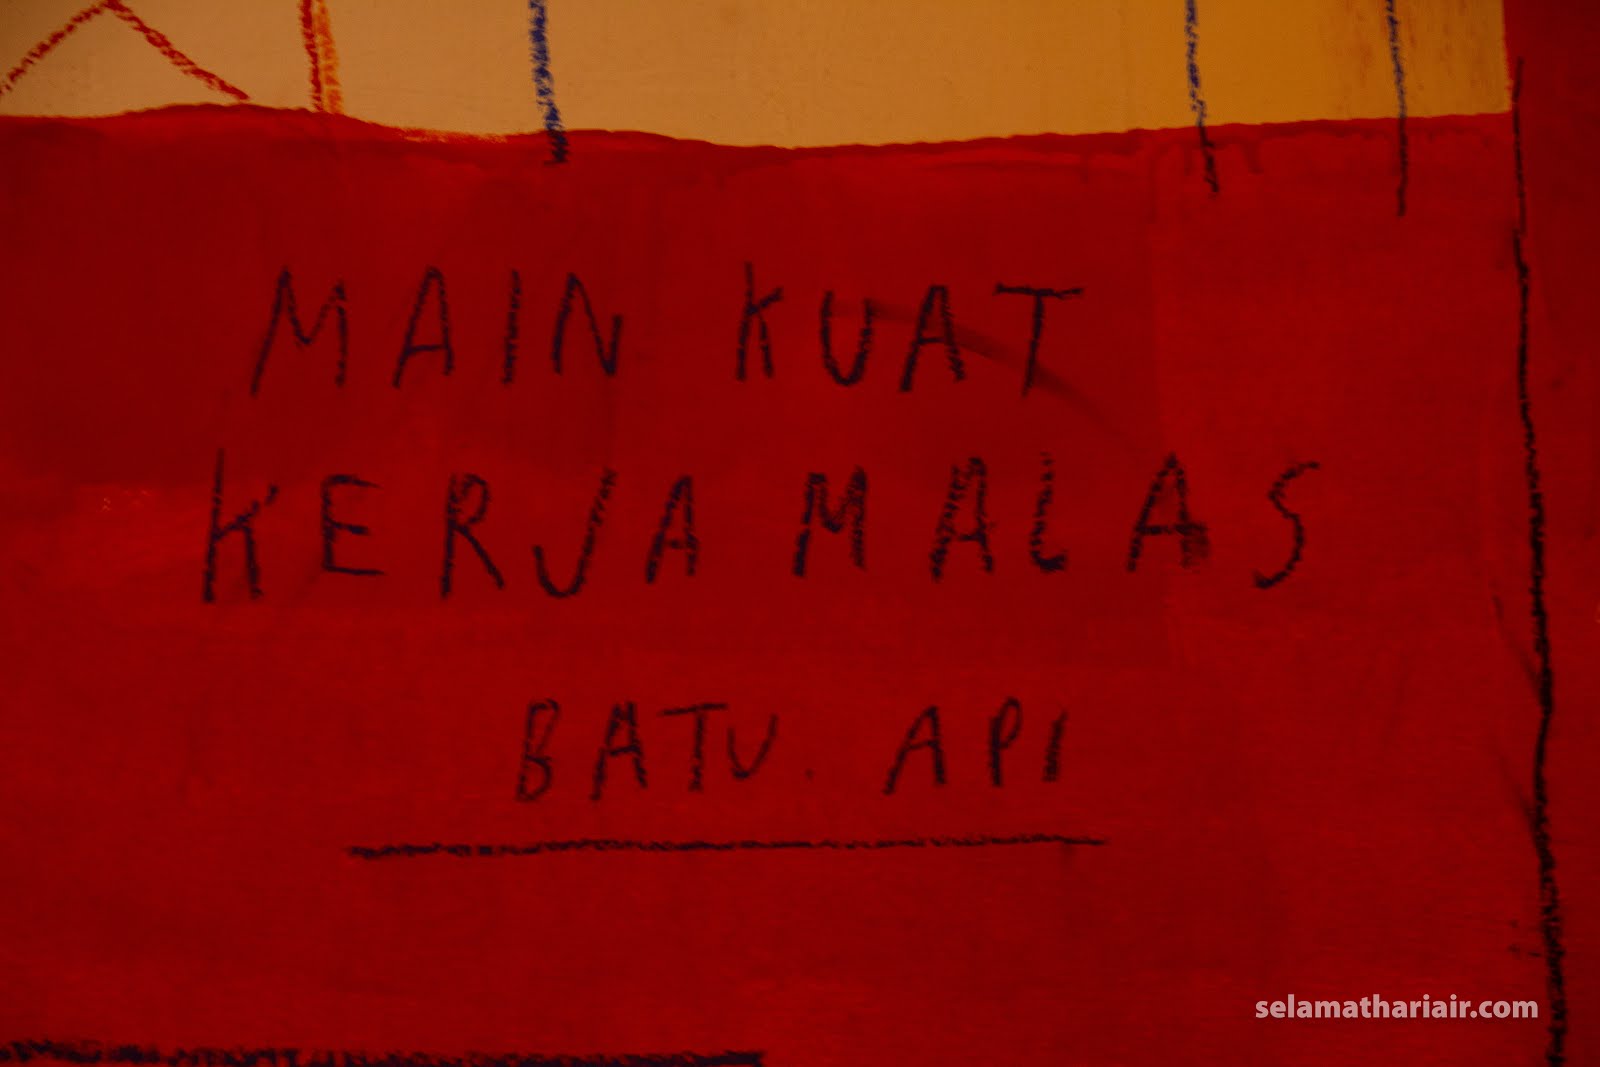 MAIN KUAT
KERJA MALAS
BATU. API
selamathariair.com